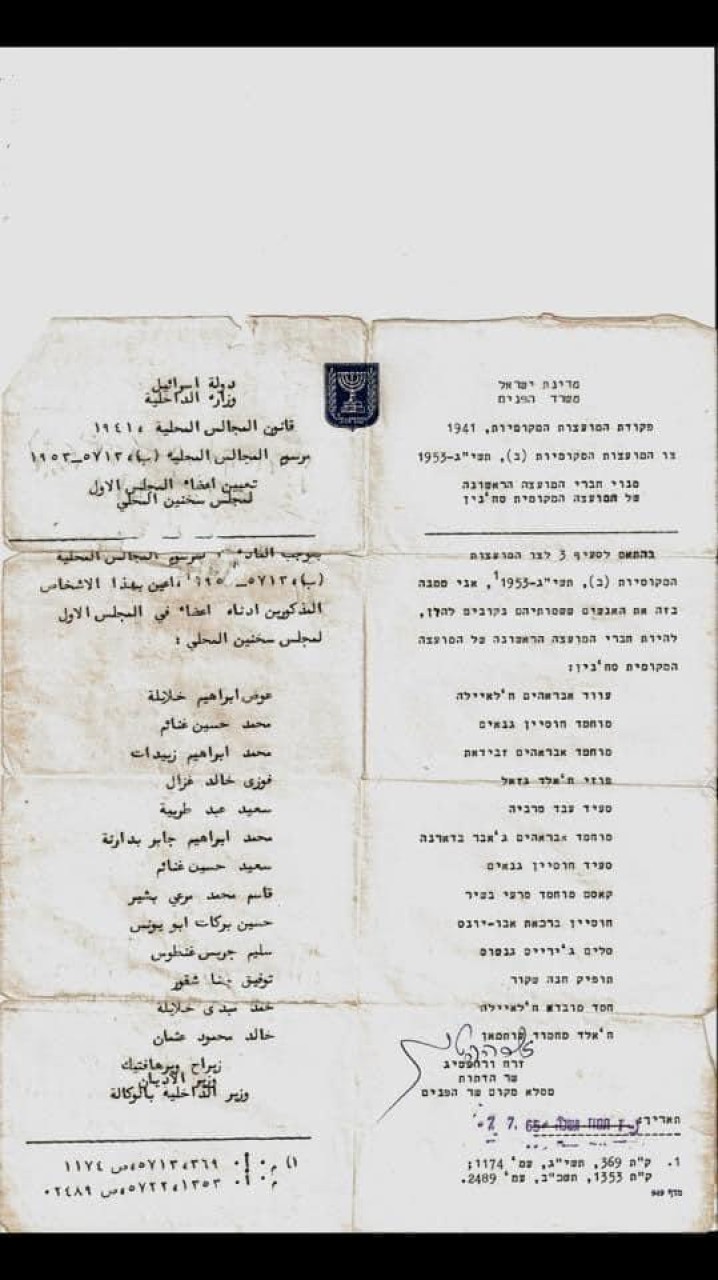 מדינת ישראל
משרד הפנים
פקודת המועצות המקומיות, 1941
צו המועצות המקומיות (ב), תשי"ג-1953
מנוי חברי המועצה הראשונה
של המועצה המקומית סח'נין
בהתאם לסעיף 3 לצו המועצות
המקומיות (ב), תשי"ג-1953¹, אני ממנה
בזה את האנשים ששמותיהם נקובים להלן,
להיות חברי המועצה הראשונה של המועצה
המקומית סח'נין:
עווד אבראהים ח'לאיילה
מוחמד חוסיין גנאים
מוחמד אבראהים זבידאת
פוזי ח'אלד גזאל
סעיד עבד טרביה
מוחמד אבראהים ג'אבר בדארנה
סעיד חוסיין גנאים
קאסם מוחמד מרעי בשיר
חוסיין ברכאת אבו-יונס
סלים ג'ירייס גנטוס
תופיק חנה שקור
חמד ח'לאיילה
ח'אלד מחמוד עותמאן
זרח ורהפטיג
שר הדתות
ממלא מקום שר הפנים
תאריך: 7. 7. 65
1. ק"ת 369, תשי"ג, עמ' 1174;
ק"ת 1353, תשכ"ב, עמ' 2489.
מדף 949
دولة اسرائيل
وزارة الداخلية
قانون المجالس المحلية ،١٩٤١
مرسوم المجالس المحلية (ب)،٥٧١٣–١٩٥٣
تعيين اعضاء المجلس الاول
لمجلس سخنين المحلي
بموجب المادة لمرسوم المجالس المحلية
(ب)،٥٧١٣– ،اعين بهذا الاشخاص
المذكورين ادناه اعضاء في المجلس الاول
لمجلس سخنين المحلي :
عوض ابراهيم خلايلة
محمد حسين غنائم
محمد ابراهيم زبيدات
فوزى خالد غزال
سعيد عبد طربية
محمد ابراهيم جابر بدارنة
سعيد حسين غنائم
قاسم محمد مرعي بشير
حسين بركات ابو يونس
سليم جريس غنطوس
توفيق حنا شقور
حمد خلايلة
خالد محمود عثمان
زيراح ويرهافتيك
وزير الاديان
وزير الداخلية بالوكالة
١) م٠ أ٠ ٥٧١٣،٣٦٩،ص ١١٧٤
م٠ أ٠ ٥٧٢٢،١٣٥٣،ص ٢٤٨٩٠